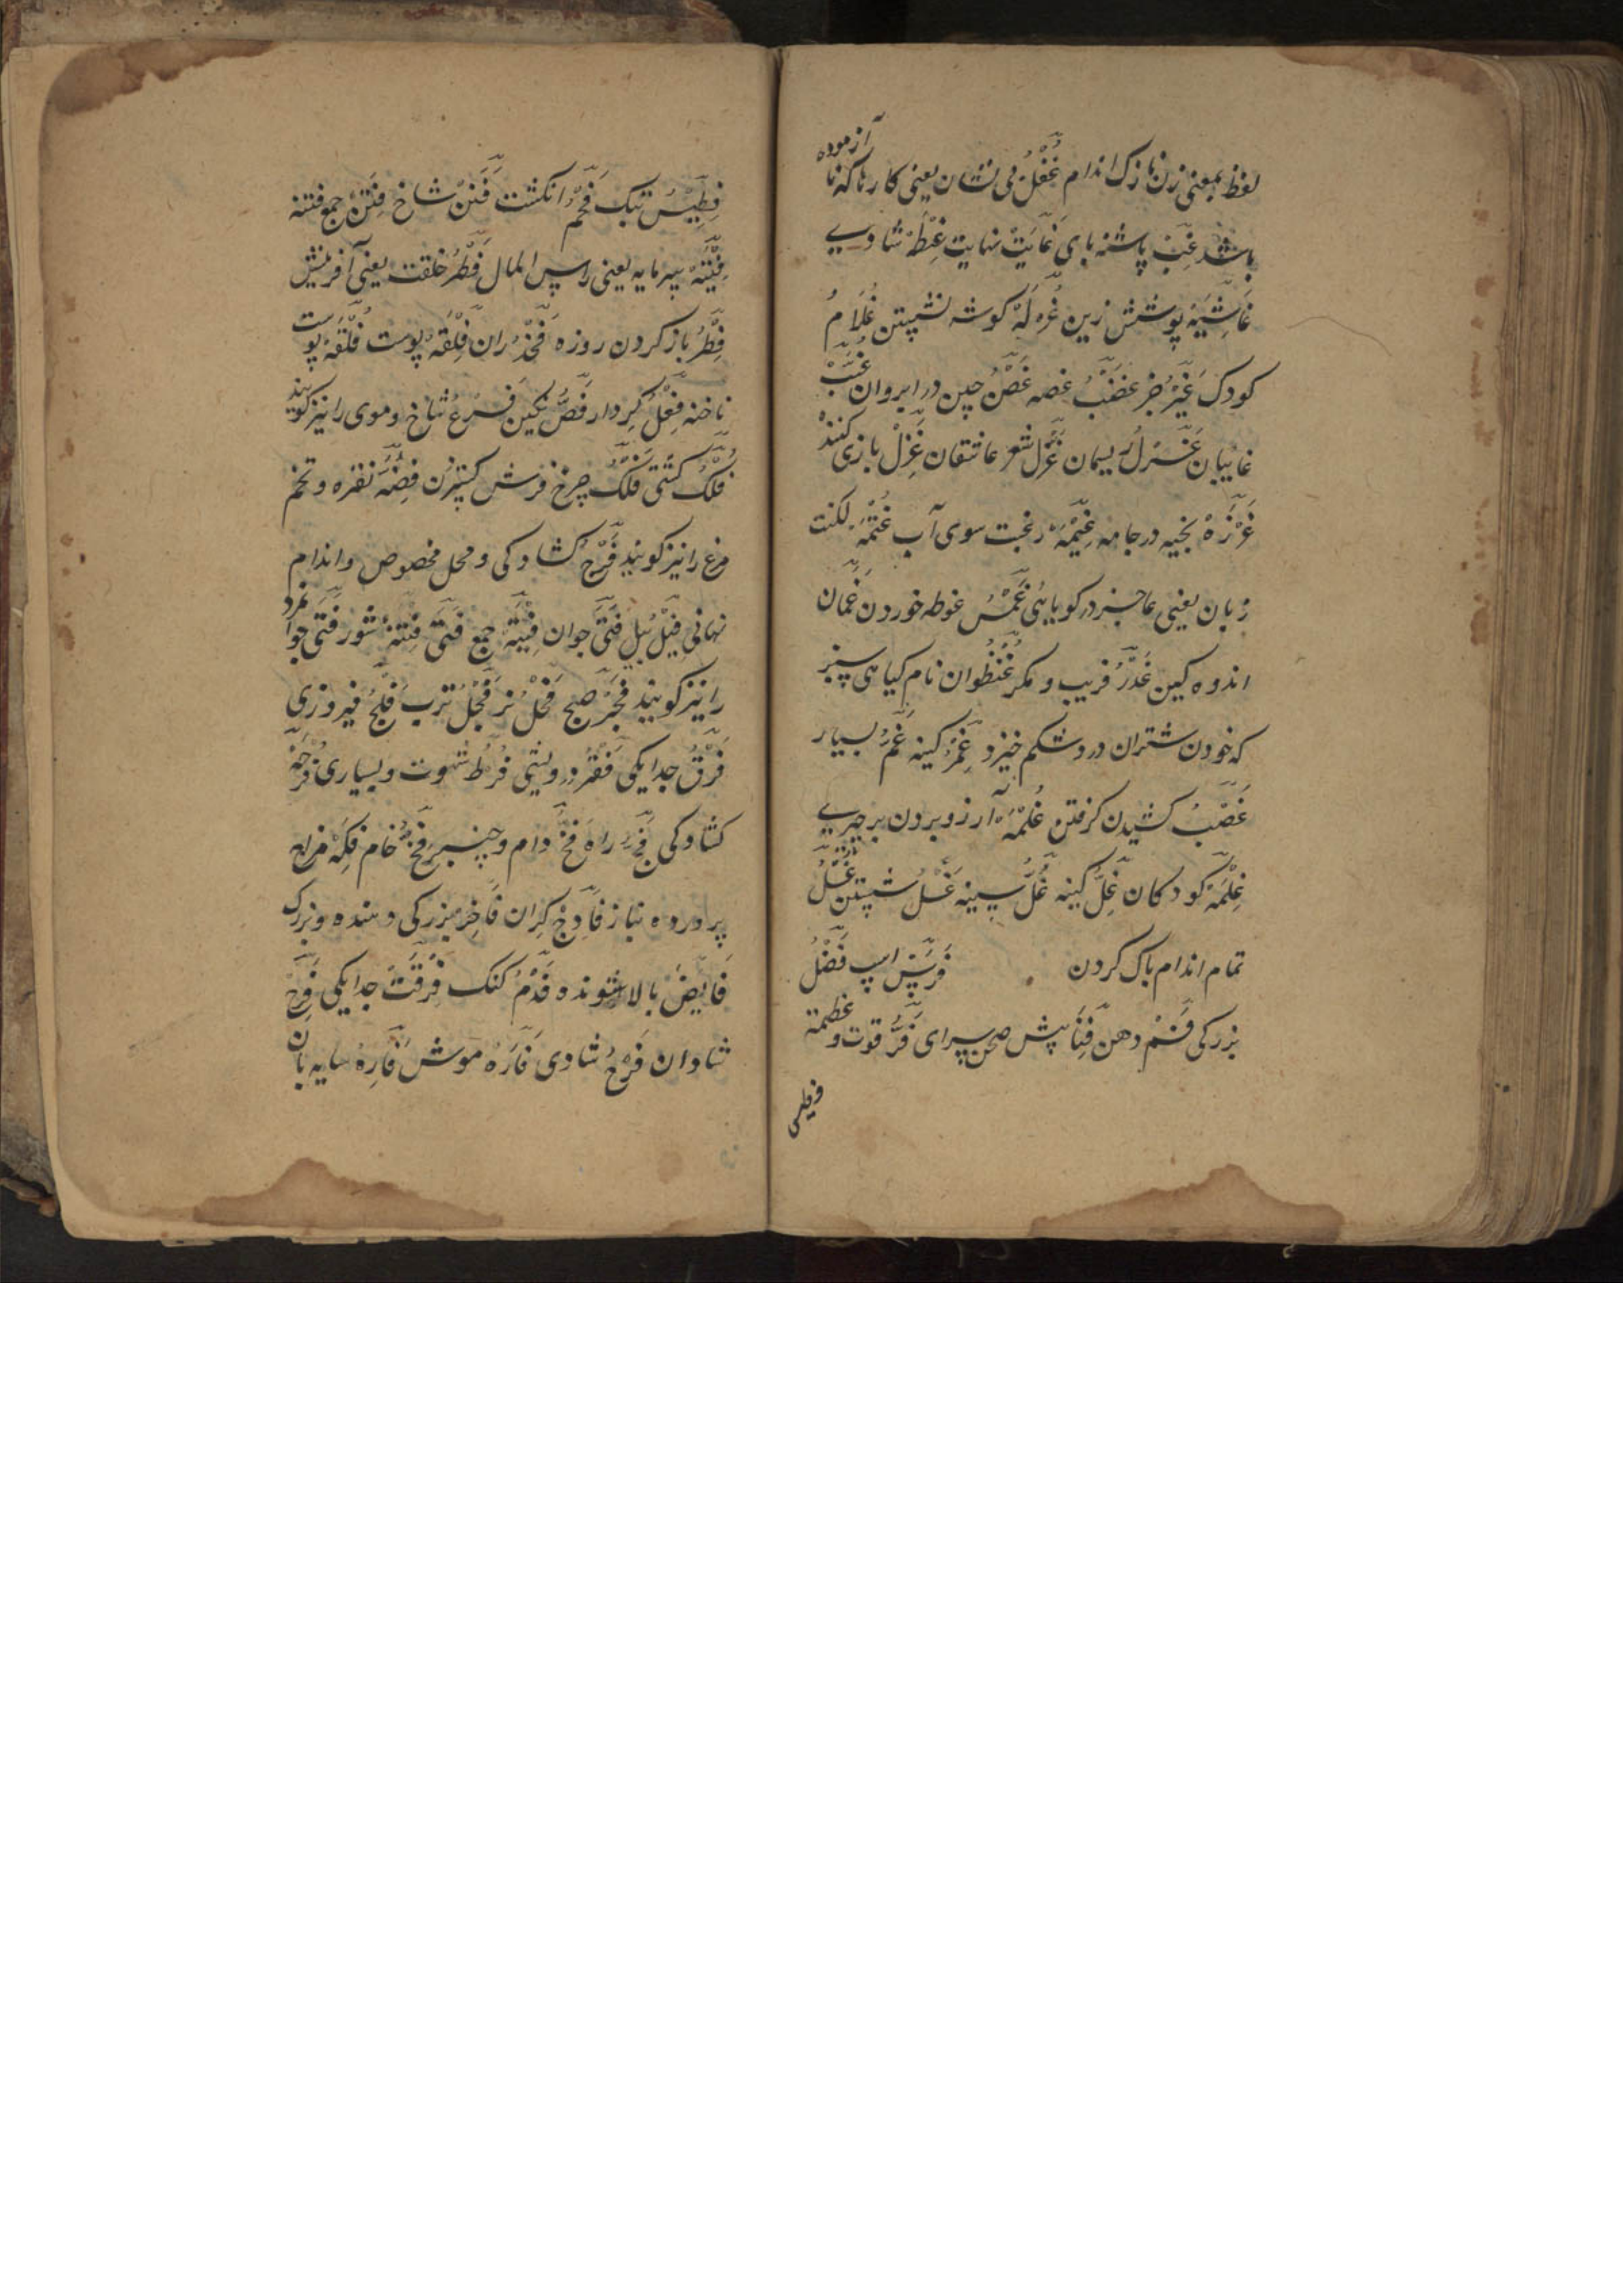 لفظ بمعنی زن نازک اندام غُفْلُ بی نشان یعنی کار ناکه نا آزموده
باشد غِبّ پاشنه بای غَایَتْ نهایت غِبْطَهْ شادیے
غَاشِیَهْ پوشش زین گوشه نشپتن غُلَامُ
کودک غَیْرُ جز غَضَبُ غصه غَضْنُ چین در ابروان غُیَّبْ
غایبان غَزْلُ ریسمان غَزَل شعر عاشقان غَزِلْ بازی کنند
غَرْزَهْ بخیه در جامه رغبت سوی آب غُتْمَهْ لکنت
زبان یعنی عاجز در کویاہی غَمْسُ غوطه خوردن غَمَّان
اندوه کین غَدْرُ فریب و مکر غُنْظُوان نام کیاهی سپز
که خودن شتران درد شکم خیزد غِمْرُ کینه غَمْرُ بسیار
غَصْبُ کشیدن کرفتن غُلْمَهْ آرزو بردن بر چیزیے
غِلْمَهْ کودکان غِلُّ کینه غُلُّ سینه غَسْلُ شپتن غُسْلُ
تمام اندام باک کردن فَرَسْ اسپ فَضْلُ
بزرکی فَمْ دهن فِنَا پیش صحن سرای فَرُّ قوت و عظمة
فِطِیْسْ تبک فَحْمْ انکشت فَنَنْ شاخ فِتَنْ جمع فتنه
سرمایه یعنی راس المال فَطْرُ خلقت یعنی آفرینش
فِطْرُ باز کردن روزه فَخْذُ ران فِلْقَهْ پوست فُلْقَهْ پوست
ناخنه فِعْلُ کردار فَصُّ نکین فَرْعُ شاخ و موی را نیز کویند
فُلْکُ کشتی فَلَکُ چرخ فرش کپتردن فِضَّهْ نقره و تخم
مرغ را نیز کویند فَرْجُ کشادکی و محل مخصوص و اندام
نهانی فِیْلُ پیل فَتَیَّ جوان فِتْیَهْ جمع فَتَیَ فِتْنَهْ شور فَتَی جوانمرد
را نیز کویند فَجْرُ صبح فَحْلُ نر فُجْلُ ترب فَلْجُ فیروزی
فَرْقُ جدایکی فَقْرُ درویشی فُرُطُ شهوت و بسیاری فُرْجَهْ
کشادکی فَجّ راه فَخُّ دام و چنبر فِجُّ خام فَکِهْ مزاح
پرورده نباز فَادِحْ کران فَاخِرْ بزرکی دهنده و بزرک
فَایِضْ بالا شونده فَدْمُ کنک فِرْقَتْ جدایکی فَرِحْ
شادان فَرَحُ شادی فَارَهْ موش فَارِهْ سایه بان